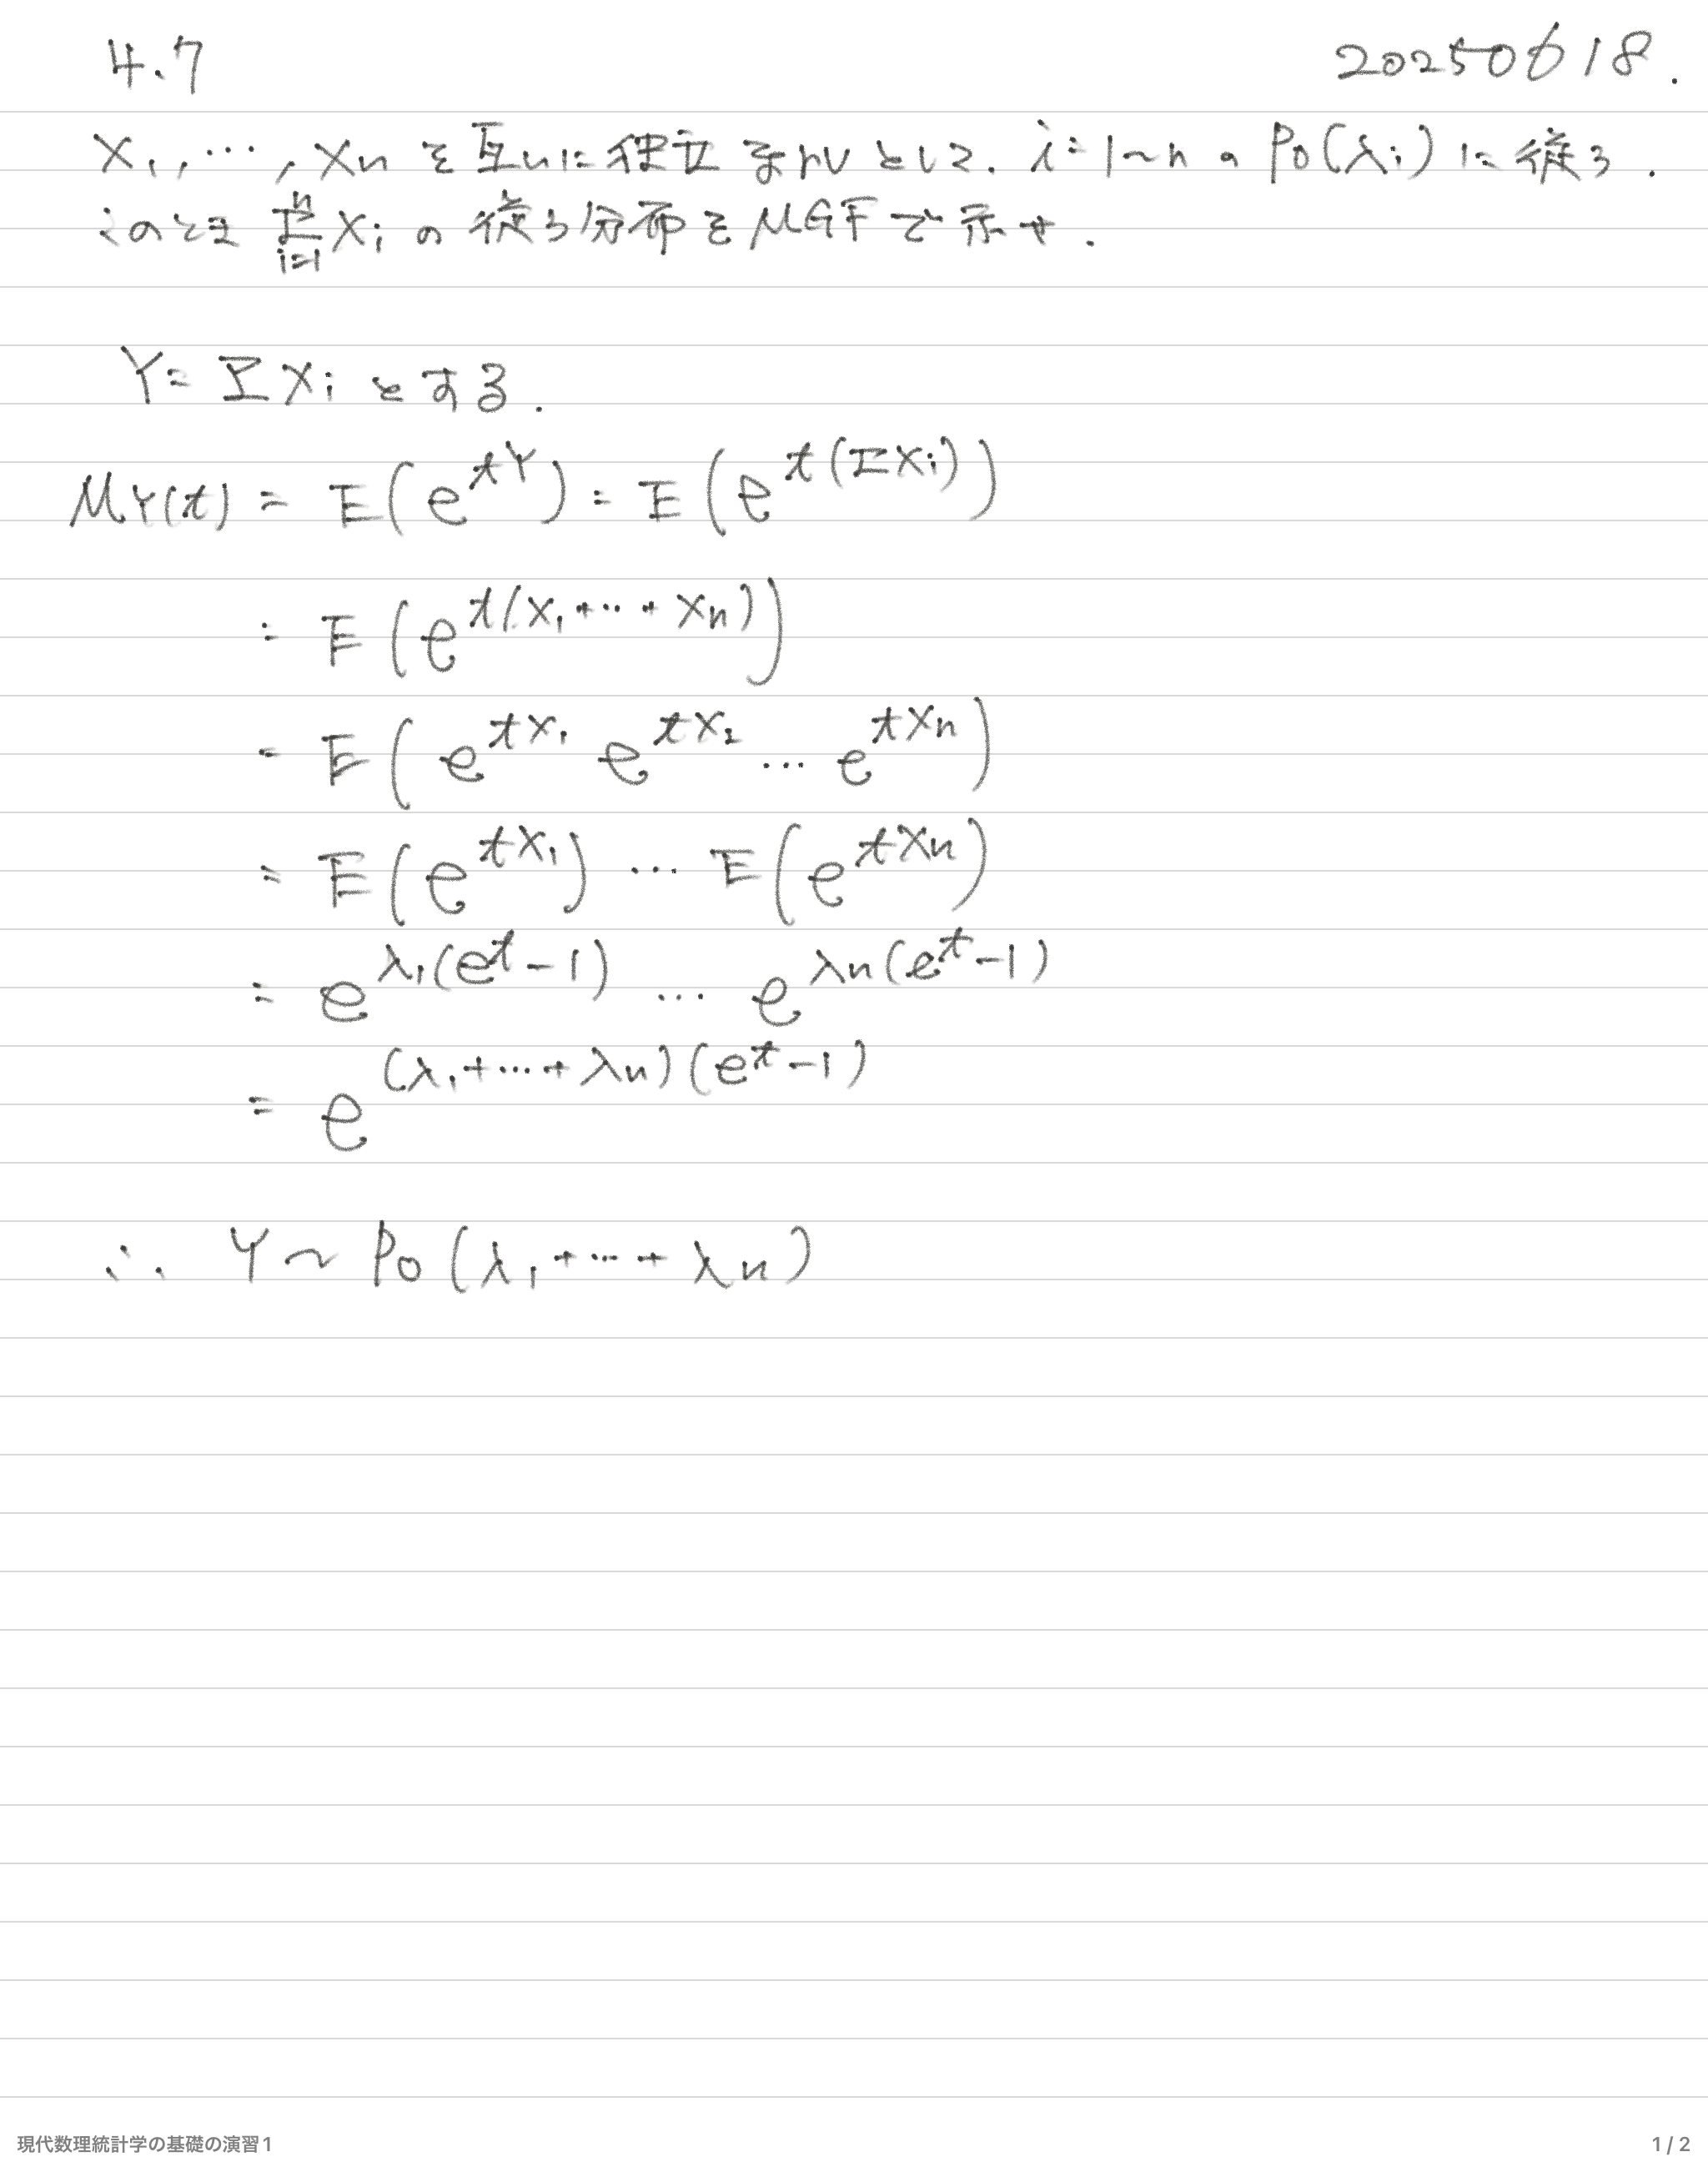 4.7 20250618.
X₁, ⋯, Xn を互いに独立な rv として. i=1~n の Po(λi) に従う.
このとき Σ[i=1→n] Xi の従う分布を MGF で示せ.
Y = ΣXi とする.
M_Y(t) = E(e^{tY}) = E(e^{t(ΣXi)})
= E(e^{t(X₁+⋯+Xn)})
= E(e^{tX₁} e^{tX₂} ⋯ e^{tXn})
= E(e^{tX₁}) ⋯ E(e^{tXn})
= e^{λ₁(e^t-1)} ⋯ e^{λn(e^t-1)}
= e^{(λ₁+⋯+λn)(e^t-1)}
∴ Y ~ Po(λ₁+⋯+λn)
現代数理統計学の基礎の演習1 1 / 2